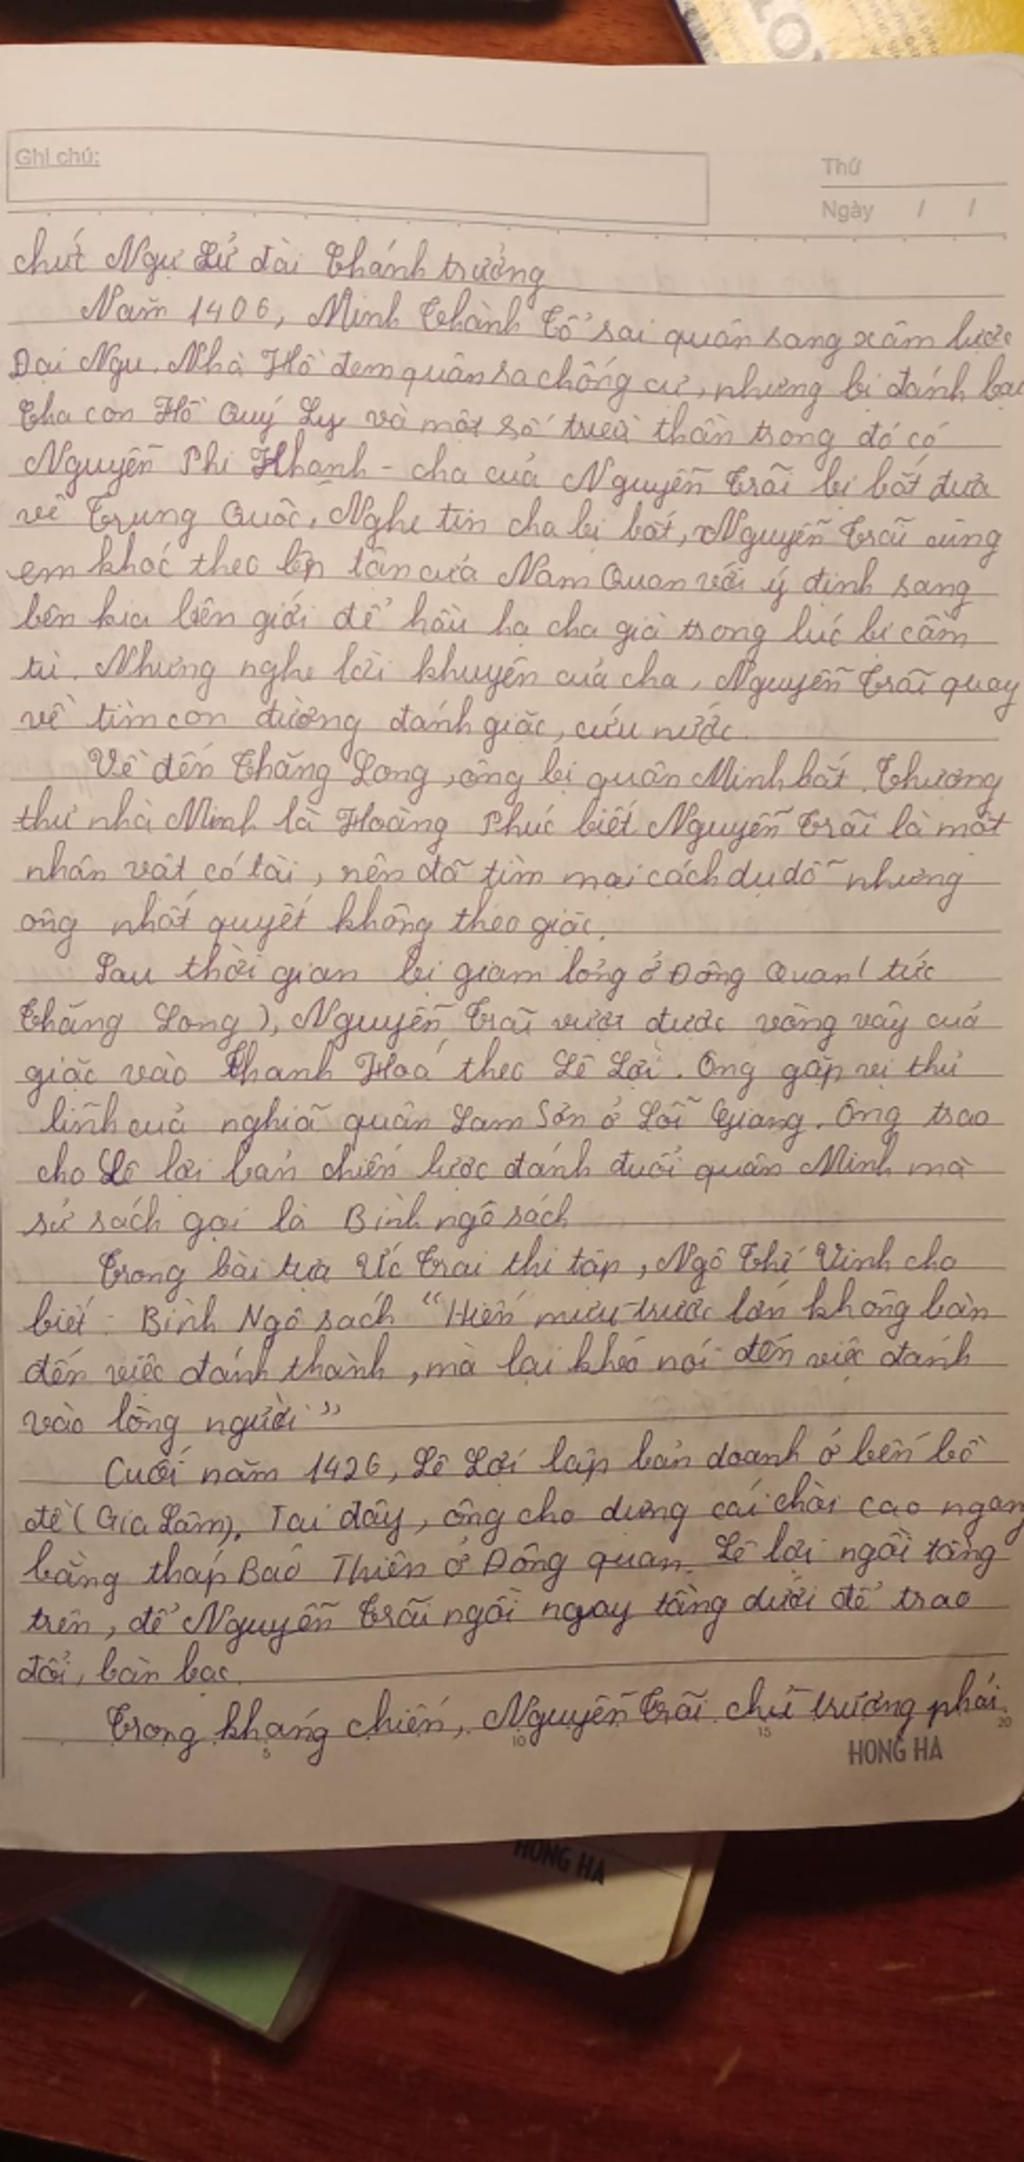 LO
Ghi chú:
Thứ
Ngày / /
chức Ngự Sử đài Chánh trưởng
Năm 1406, Minh Thành Tổ sai quân sang xâm lược
Đại Ngu. Nhà Hồ đem quân ra chống cự, nhưng bị đánh bại
Cha con Hồ Quý Ly và một số triều thần trong đó có
Nguyễn Phi Khanh - cha của Nguyễn Trãi bị bắt đưa
về Trung Quốc. Nghe tin cha bị bắt, Nguyễn Trãi cùng
em khóc theo lên tận cửa Nam Quan với ý định sang
bên kia biên giới để hầu hạ cha già trong lúc bị cầm
tù. Nhưng nghe lời khuyên của cha, Nguyễn Trãi quay
về tìm con đường đánh giặc, cứu nước.
Về đến Thăng Long, ông bị quân Minh bắt. Thượng
thư nhà Minh là Hoàng Phúc biết Nguyễn Trãi là một
nhân vật có tài, nên đã tìm mọi cách dụ dỗ nhưng
ông nhất quyết không theo giặc.
Sau thời gian bị giam lỏng ở Đông Quan ( tức
Thăng Long ), Nguyễn Trãi vượt được vòng vây của
giặc vào Thanh Hoá theo Lê Lợi. Ông gặp vị thủ
lĩnh của nghĩa quân Lam Sơn ở Lỗi Giang. Ông trao
cho Lê lợi bản chiến lược đánh đuổi quân Minh mà
sử sách gọi là Bình ngô sách
Trong bài tựa Ức Trai thi tập, Ngô Thế Vinh cho
biết: Bình Ngô sách "Hiến mưu trước lớn không bàn
đến việc đánh thành, mà lại khéo nói đến việc đánh
vào lòng người"
Cuối năm 1426, Lê Lợi lập bản doanh ở bến bồ
đề ( Gia Lâm). Tại đây, ông cho dựng cái chòi cao ngang
bằng tháp Báo Thiên ở Đông quan. Lê lợi ngồi tầng
trên, để Nguyễn Trãi ngồi ngay tầng dưới để trao
đổi, bàn bạc.
Trong kháng chiến, Nguyễn Trãi chủ trương phải
5 10 15 20
HONG HA
HONG HA